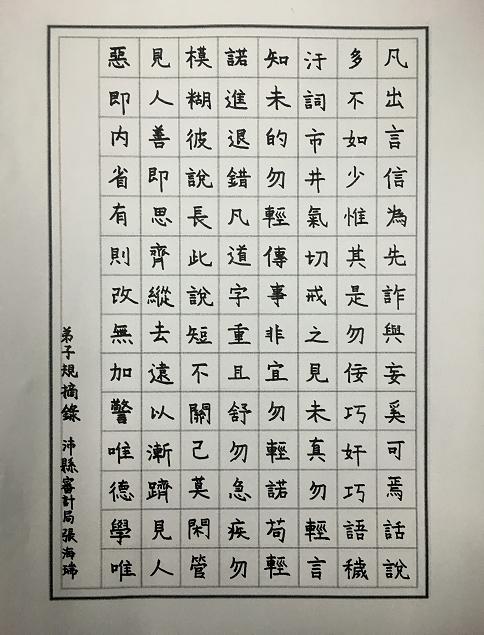 凡出言信為先詐與妄奚可焉話說
多不如少惟其是勿佞巧奸巧語穢
汙詞市井氣切戒之見未真勿輕言
知未的勿輕傳事非宜勿輕諾苟輕
諾進退錯凡道字重且舒勿急疾勿
模糊彼說長此說短不關己莫閑管
見人善即思齊縱去遠以漸躋見人
惡即内省有則改無加警唯德學唯
弟子規摘錄 沛縣審計局張海瑞